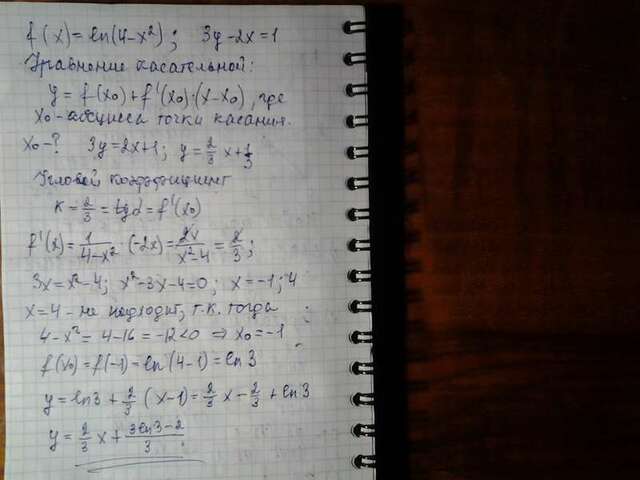 f(x)=ln(4-x²); 3y-2x=1
Уравнение касательной:
y=f(x₀)+f'(x₀)·(x-x₀), где
x₀-абсцисса точки касания.
x₀-? 3y=2x+1; y=2/3 x+1/3
Угловой коэффициент
k=2/3=tgα=f'(x₀)
f'(x)=1/(4-x²)·(-2x)=2x/(x²-4)=2/3;
3x=x²-4; x²-3x-4=0; x=-1; 4
x=4-не подходит, т.к. тогда
4-x²=4-16=-12<0 ⇒ x₀=-1
f(x₀)=f(-1)=ln(4-1)=ln3
y=ln3+2/3(x-1)=2/3 x-2/3+ln3
y=2/3 x+(3ln3-2)/3